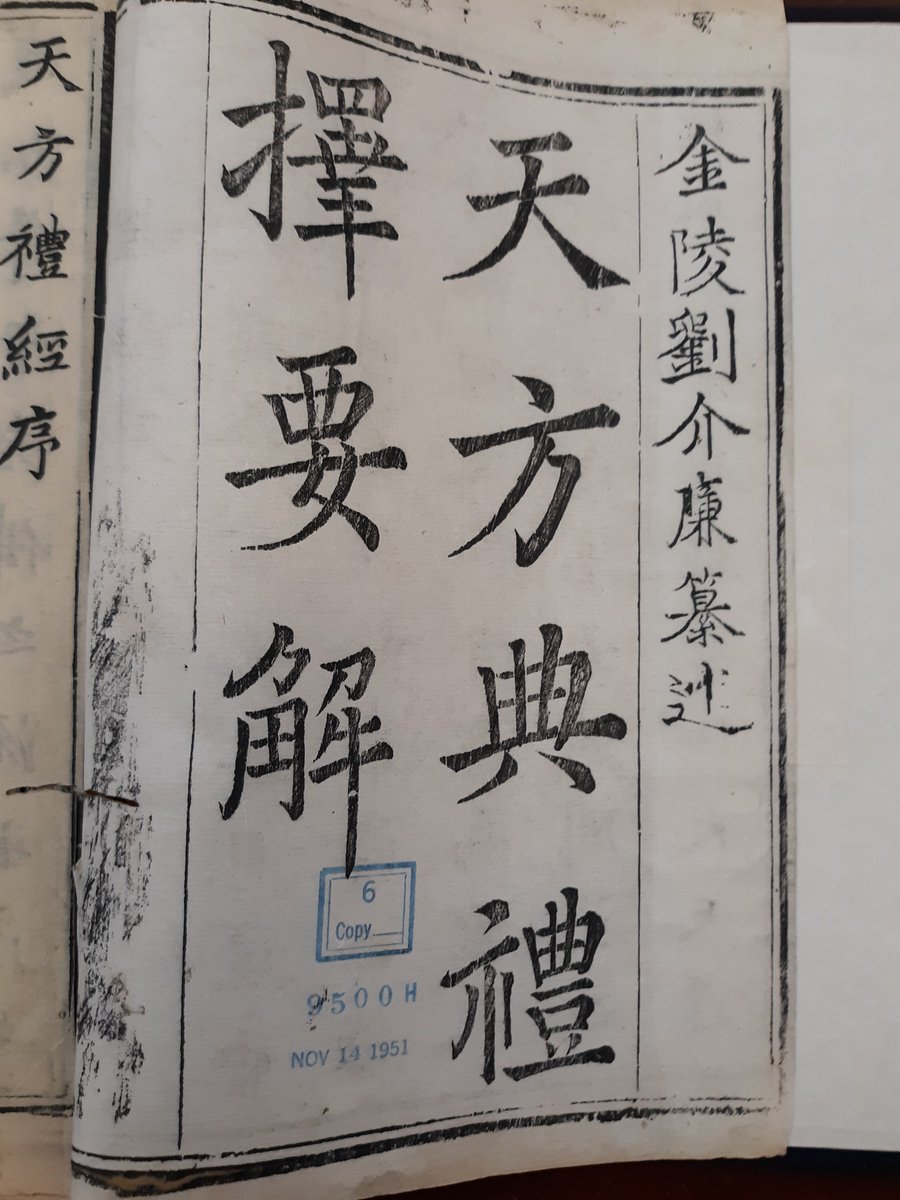 金陵劉介廉纂述
天方典禮
擇要解
6
Copy
9500H
NOV 14 1951
天方禮經序